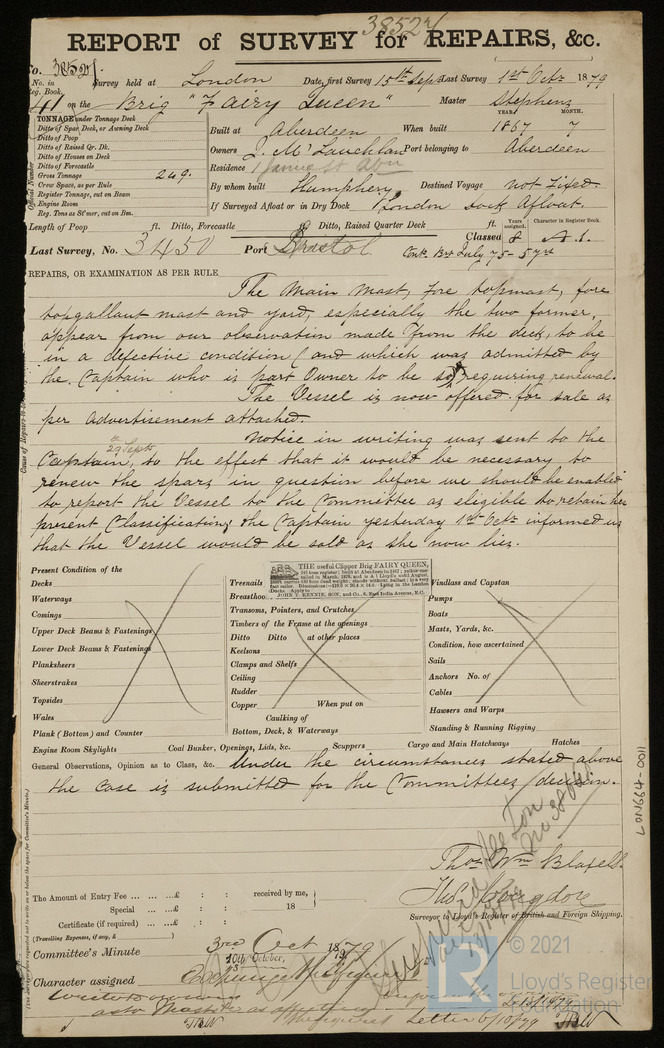 38527
REPORT of SURVEY for REPAIRS, &c.
No. 38527
No. in Reg. Book. Survey held at London Date, first Survey 15th Sept Last Survey 1st Oct 1879
41 on the Brig "Fairy Queen" Master Stephens
TONNAGE under Tonnage Deck
Ditto of Spar Deck, or Awning Deck
Ditto of Poop
Ditto of Raised Qr. Dk.
Ditto of Houses on Deck
Ditto of Forecastle
Gross Tonnage 249.
Crew Space, as per Rule
Register Tonnage, cut on Beam
Engine Room
Reg. Tons as St'mer, cut on Bm.
Official Number
YEAR. MONTH.
Built at Aberdeen When built 1867 7
Owners J. McLauchlan Port belonging to Aberdeen
Residence
By whom built Humphery Destined Voyage not fixed.
If Surveyed Afloat or in Dry Dock London Dock Afloat.
Length of Poop ft. Ditto, Forecastle ft. Ditto, Raised Quarter Deck ft. Years assigned. Character in Register Book.
Last Survey, No. 3450 Port Bristol Classed 8 A.1.
Cont. Brs July 75 - 5 yrs
REPAIRS, OR EXAMINATION AS PER RULE
The Main Mast, Fore topmast, fore
topgallant mast and yard, especially the two former,
appear from our observation made from the deck, to be
in a defective condition (and which was admitted by
the Captain who is part Owner to be so) requiring renewal.
The Vessel is now offered for sale as
per Advertisement attached.
Notice in writing was sent to the
29 Septr
Captain, to the effect that it would be necessary to
renew the spars in question before we should be enabled
to report the Vessel to the Committee as eligible to retain her
present Classification; the Captain yesterday 1st Oct informed us
that the Vessel would be sold as she now lies.
Present Condition of the
Decks
Waterways
Comings
Upper Deck Beams & Fastenings
Lower Deck Beams & Fastenings
Planksheers
Sheerstrakes
Topsides
Wales
Plank (Bottom) and Counter
Engine Room Skylights
THE useful Clipper Brig FAIRY QUEEN,
JOHN T. RENNIE, SON, and Co., 6, East India Avenue, E.C.
Treenails
Breasthooks
Transoms, Pointers, and Crutches
Timbers of the Frame at the openings
Ditto Ditto at other places
Keelsons
Clamps and Shelfs
Ceiling
Rudder
Copper When put on
Caulking of
Bottom, Deck, & Waterways
Windlass and Capstan
Pumps
Boats
Masts, Yards, &c.
Condition, how ascertained
Sails
Anchors No. of
Cables
Hawsers and Warps
Standing & Running Rigging
Coal Bunker, Openings, Lids, &c. Scuppers Cargo and Main Hatchways Hatches
General Observations, Opinion as to Class, &c. Under the circumstances stated above
the case is submitted for the Committee's decision.
LON664-0011
Thos Wm Blafell.
Surveyor to Lloyd's Register of British and Foreign Shipping.
The Amount of Entry Fee ... ... £ : : received by me,
Special ... ... £ : : 18
Certificate (if required) ... £ : :
(Travelling Expenses, if any, £ )
Committee's Minute 3rd Oct 1879
10th October, 79
Character assigned
© 2021
Lloyd's Register
Foundation